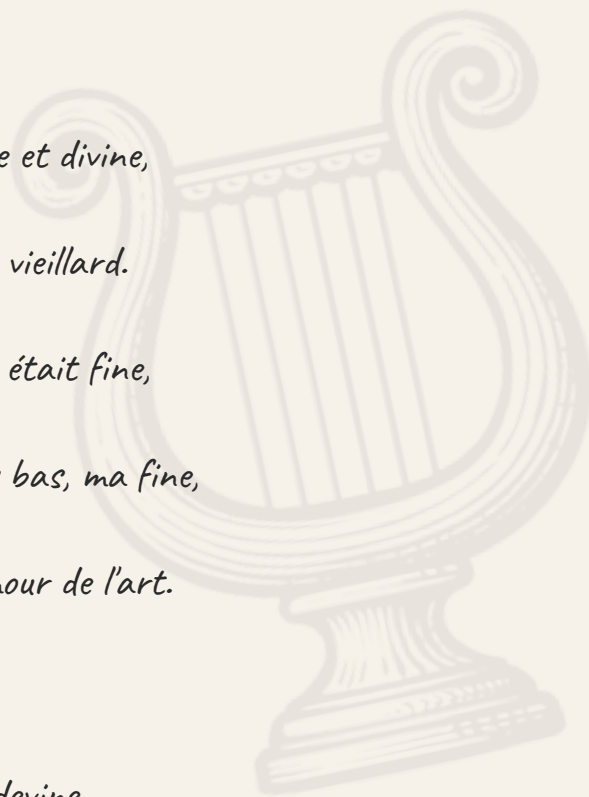 et divine,
vieillard.
était fine,
bas, ma fine,
de l'art.
devine